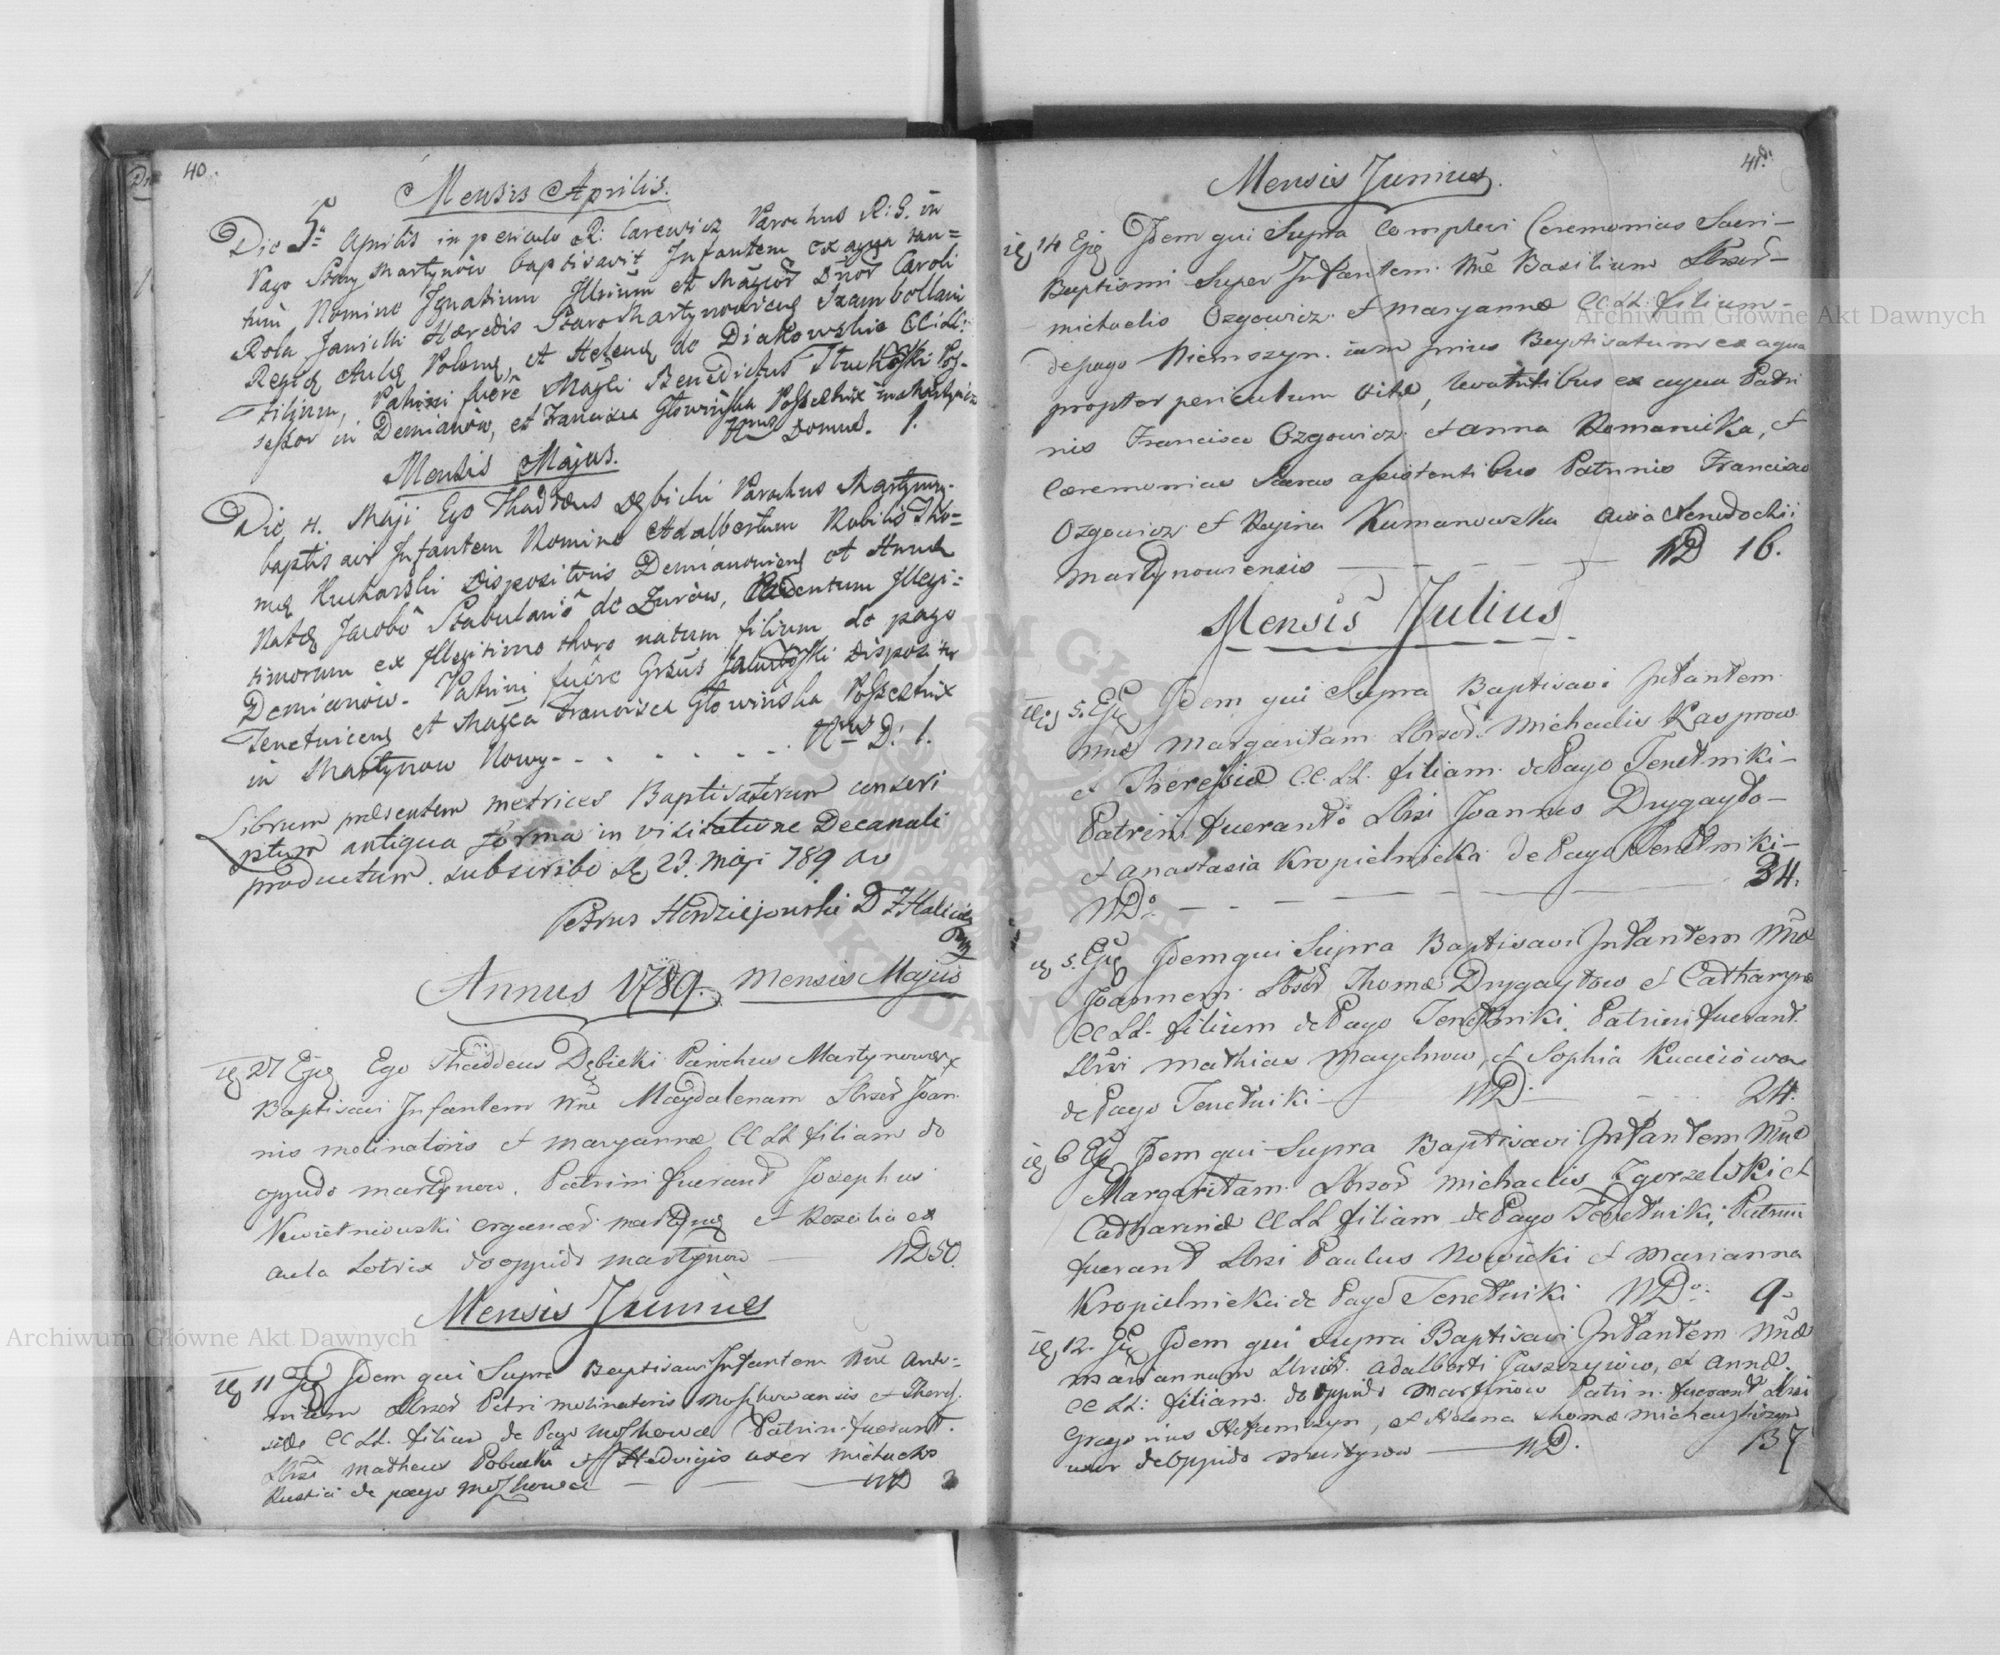 40.
Mensis Aprilis.
Die 5ta Aprilis in periculo R: Carewicz Parochus R: G. in
Pago Stary Martynow baptisavit Infantem ex aqua tan=
tum Nomine Ignatium Illrium et Magcor Dnor Caroli
Rola Janicki Hæredis Staro Martynoviens Szambollani
Regiæ Aulæ Polonæ, et Helenæ de Diakowskie CC: LL:
Filium, Patrini fuere Magci Benedictus Pos-
sessor in Demianow, et Francisca Głowińska Possestrix in Martynow
Nrus Domus. 1.
Mensis Majus.
Die 4. Maji Ego Thaddeus Dębicki Parochus Martynov.
baptisavi Infantem Nomine Adalbertum Nobilis Tho=
mæ Kucharski Dispositoris Demianoviens et Annæ
Natæ Jacobo Stabulario de Zurow, Illegi=
timorum ex Illegitimo thoro natum filium de pago
Demianow. Patrini fuere Grsus Dispositor
Tenetnicens et Magca Francisca Głowińska Possestrix
in Martynow Nowy - - - - - - Nrus D: 1.
Librum præsentem metrices Baptisatorum conscri
ptum antiqua forma in visitatione Decanali
productum subscribo D 23. Maji 789 Ao
Petrus D Z Halicien
Annus 1789. Mensis Majus
27 Ejq Ego Thaddeus Dębicki Parochus Martynowien
Baptisavi Infantem Nne Magdalenam Lbrsor Joan
nis molinatoris et Maryannæ CC LL filiam de
oppido Martynow. Patrini fuerant Josephus
Kwietniowski organar: Martynq et Rozalia ex
aula Lotrix de oppido Martynow — ND 50.
Mensis Junius
11 Ejq Idem qui Supra Baptisavi Infantem Nne Anto=
nium Lbrsor Petri molinatoris Moszkowansis et There=
siæ CC LL. filium de Pago Moszkowce Patrini fuerant.
Lbrsi Matheus Pobucki et Hedvigis uxor Michaelis
Rustici de pago Moszkowce — — ND 3
41.
Mensis Junius.
14 Ejq Idem qui Supra Complevi Ceremonias Sacri—
Baptismi Super Infantem Nne Basilium Lbrsor—
Michaelis Ozgowicz et Maryannæ CC: LL: filium—
de pago Niemszyn iam prius Baptisatum ex aqua
propter periculum vitæ, levantibus ex aqua Patri
nis Francisco Ozgowicz et Anna Romanicka, et
Cæremonias Sacras assistentibus Patrinis Francisco
Ozgowicz et Regina Kumanowska
Martynowiensis — — — — ND 16.
Mensis Julius
5. Ejq Idem qui Supra Baptisavi Infantem
Nne Margaritam Lbrsor. Michaelis Kasprow
et Theressiæ C.C. LL. filiam de Pago Tenetniki—
Patrini fuerant Lbrsi Joannes Drygayło—
et Anastasia Kropielnicka de Pago Tenetniki—
NDo. — — — — 34.
5. Ejq Idem qui Supra Baptisavi Infantem Nne
Joannem Lbrsor Thomæ Drygayłow et Catharynæ
CC LL. filium de Pago Tenetniki. Patrini fuerant.
Lbrsi Mathias Maychrow, et Sophia
de Pago Tenetniki — ND — 24.
6 Ejq Idem qui Supra Baptisavi Infantem Nne
Margaritam Lbrsor Michaelis Zgorzelski et
Catharinæ CC LL filiam de Pago Tenetniki, Patrini
fuerant Lbrsi Paulus Nowicki et Marianna
Kropielnicka de Pago Tenetniki NDo. 9.
12. Ejq Idem qui Supra Baptisavi Infantem Nne
Mariannam Lbrsor. Adalberti Jaszczyszyn, et Annæ.
CC LL: filiam. de oppido Martinow Patrin. fuerant Lbrsi
Gregorius, et Helena Thomæ
uxor de oppido Martynow — ND. 137
Archiwum Główne Akt Dawnych
Archiwum Główne Akt Dawnych